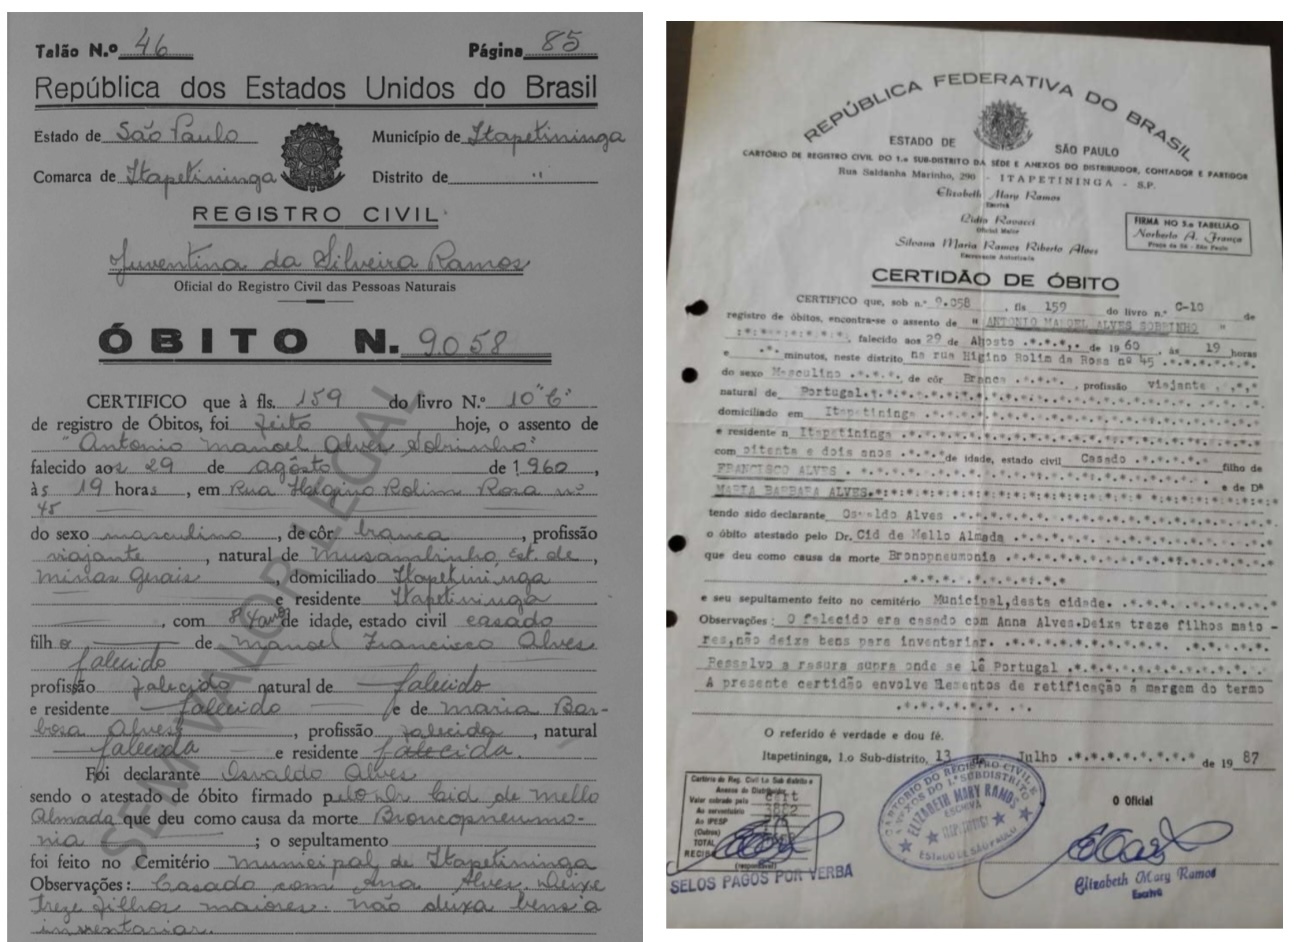 Talão N.º 46 Página 85
República dos Estados Unidos do Brasil
Estado de São Paulo Município de Itapetininga
Comarca de Itapetininga Distrito de "
REGISTRO CIVIL
Juventina da Silveira Ramos
Oficial do Registro Civil das Pessoas Naturais
ÓBITO N. 9.058
CERTIFICO que à fls. 159 do livro N.º 10 "C"
de registro de Óbitos, foi feito hoje, o assento de
"Antonio Manoel Alves Sobrinho"
falecido aos 29 de agôsto de 1.960,
às 19 horas, em Rua Higino Rolim Rosa nº
45
do sexo masculino, de côr branca, profissão
viajante, natural de Musambinho, Est. de
Minas Gerais, domiciliado Itapetininga
e residente Itapetininga
, com de idade, estado civil casado
filho de Manoel Francisco Alves
falecido
profissão falecido natural de falecido
e residente falecido e de Maria Bar-
bosa Alves, profissão falecida, natural
falecida e residente falecida.
Foi declarante Osvaldo Alves
sendo o atestado de óbito firmado pelo Dr Cid de Mello
Almada que deu como causa da morte Broncopneumo-
nia ; o sepultamento
foi feito no Cemitério Municipal de Itapetininga
Observações: Casado com Ana Alves. Deixe
treze filhos maiores. não deixa bens a
inventariar.
SEM VALOR LEGAL
REPÚBLICA FEDERATIVA DO BRASIL
ESTADO DE SÃO PAULO
CARTÓRIO DE REGISTRO CIVIL DO 1.º SUB-DISTRITO DA SÉDE E ANEXOS DO DISTRIBUIDOR, CONTADOR E PARTIDOR
Rua Saldanha Marinho, 290 - ITAPETININGA - S.P.
Elizabeth Mary Ramos
Escrivã
Lidia Ravacci
Oficial Maior
Silvana Maria Ramos Riberto Alves
Escrevente Autorizada
FIRMA NO 5.º TABELIÃO
Norberto A. França
Praça da Sé - São Paulo
CERTIDÃO DE ÓBITO
CERTIFICO que, sob n.º 9.058, fls 159 do livro n.º C-10 de
registro de óbitos, encontra-se o assento de " ANTONIO MANOEL ALVES SOBRINHO "
falecido aos 29 de Agosto de 1960, às 19 horas
e minutos, neste distrito na rua Higino Rolim da Rosa nº 45
do sexo Masculino, de côr Branca, profissão viajante
natural de Portugal
domiciliado em Itapetininga
e residente n Itapetininga
com oitenta e dois anos de idade, estado civil Casado filho de
FRANCISCO ALVES e de Dª
MARIA BARBARA ALVES
tendo sido declarante Osvaldo Alves
o óbito atestado pelo Dr. Cid de Mello Almada
que deu como causa da morte Bronopneumonia
e seu sepultamento feito no cemitério Municipal, desta cidade.
Observações: O falecido era casado com Anna Alves. Deixa treze filhos maio -
res, não deixa bens para inventariar.
Ressalvo a rasura supra onde se lê Portugal
A presente certidão envolve Elementos de retificação á margem do termo
O referido é verdade e dou fé.
Itapetininga, 1.o Sub-distrito, 13 de Julho de 19 87
Cartório do Reg. Civil 1.o Sub distrito e
Anexos do Distribuidor
Valor cobrado pela cert
Ao serventuário
Ao IPESP
(Outros)
TOTAL
SELOS PAGOS POR VERBA
CARTÓRIO DO REGISTRO CIVIL E
ANEXOS DO 1.º SUBDISTRITO
ELIZABETH MARY RAMOS
ESCRIVÃ
ITAPETININGA
ESTADO DE SÃO PAULO
O Oficial
Elizabeth Mary Ramos
Escrivã